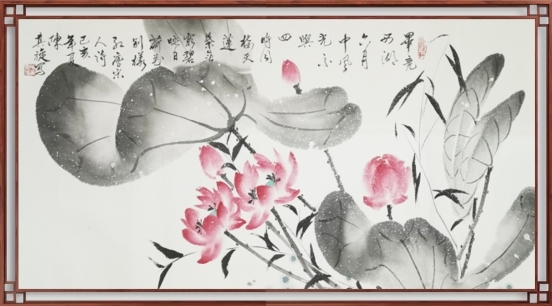 畢竟
西湖
六月
中風
光不
與
四
時同
接天
蓮
葉无
窮碧
映日
荷花
别樣
红唐宋
人诗
己亥
年
陳
其写